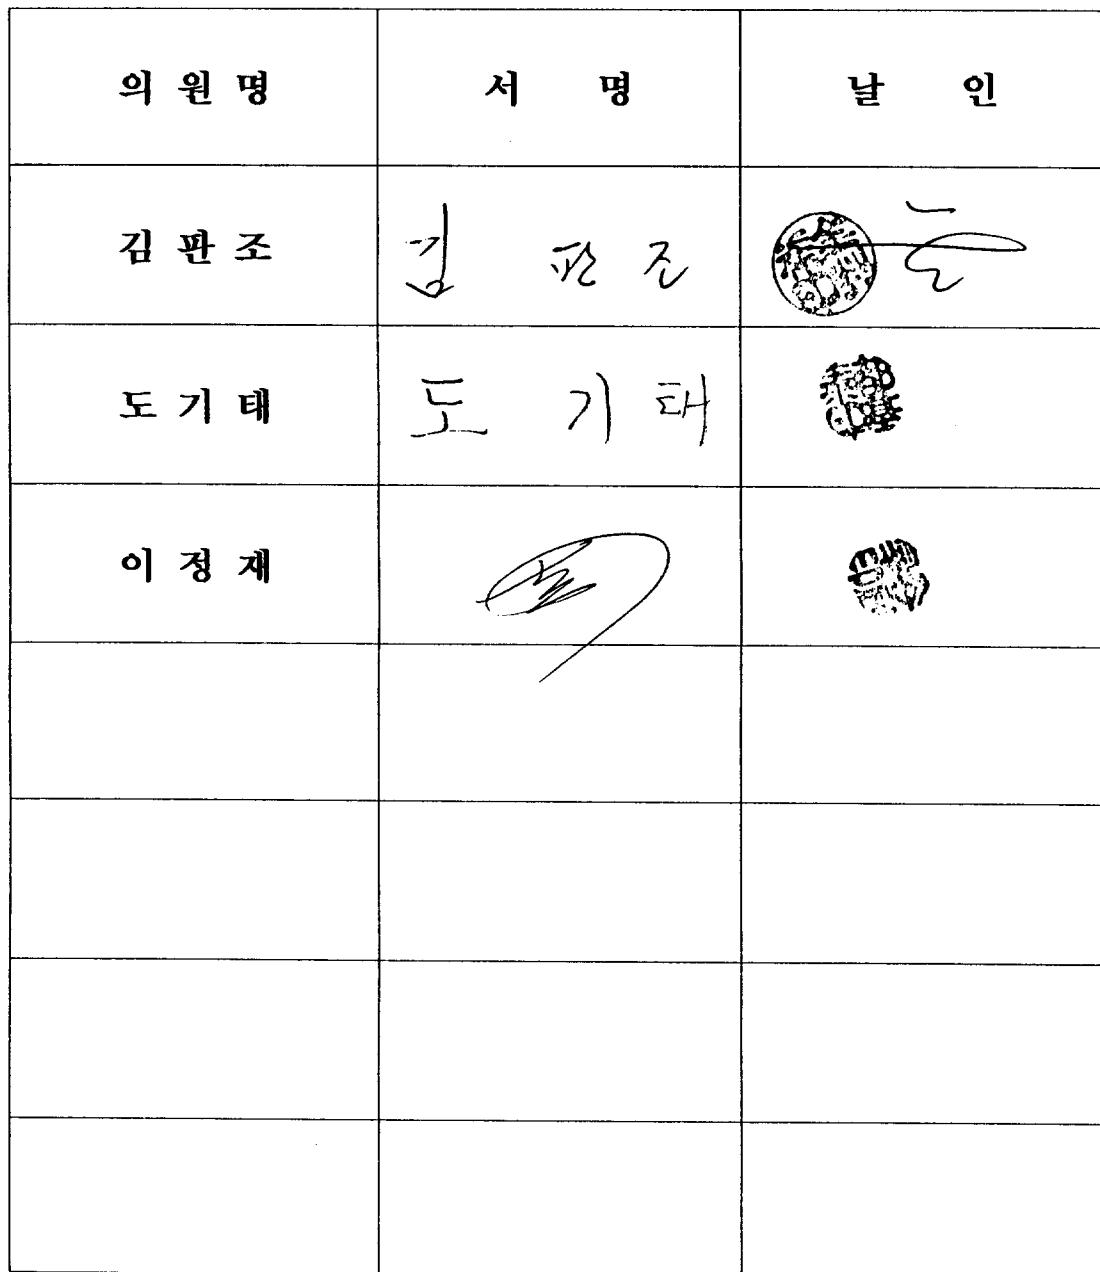 의 원 명 서 명 날 인
김 판 조 김 판 조
도 기 태 도 기 태
이 정 재